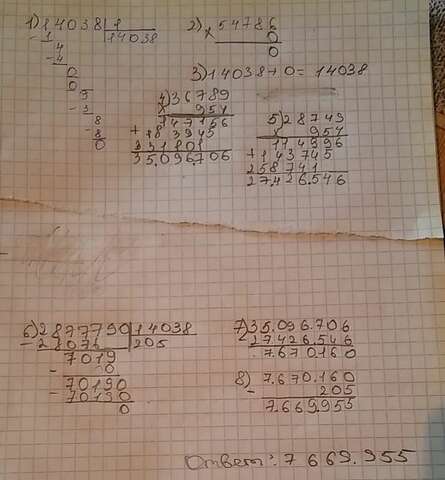 1) 14038 | 1
- 1 | 14038
4
- 4
0
0
3
- 3
8
- 8
0
2) 54786
x 0
0
3) 14038 + 0 = 14038
4) 36789
x 954
147156
+ 18 3945
331101
35.096.706
5) 28749
x 954
114996
+ 143745
258741
27.426.546
6) 2877790 | 14038
- 28076 | 205
7019
- 0
70190
- 70190
0
7) 35.096.706
- 27426.546
7.670.160
8) 7.670.160
- 205
7.669.955
Ответ: 7 669.955